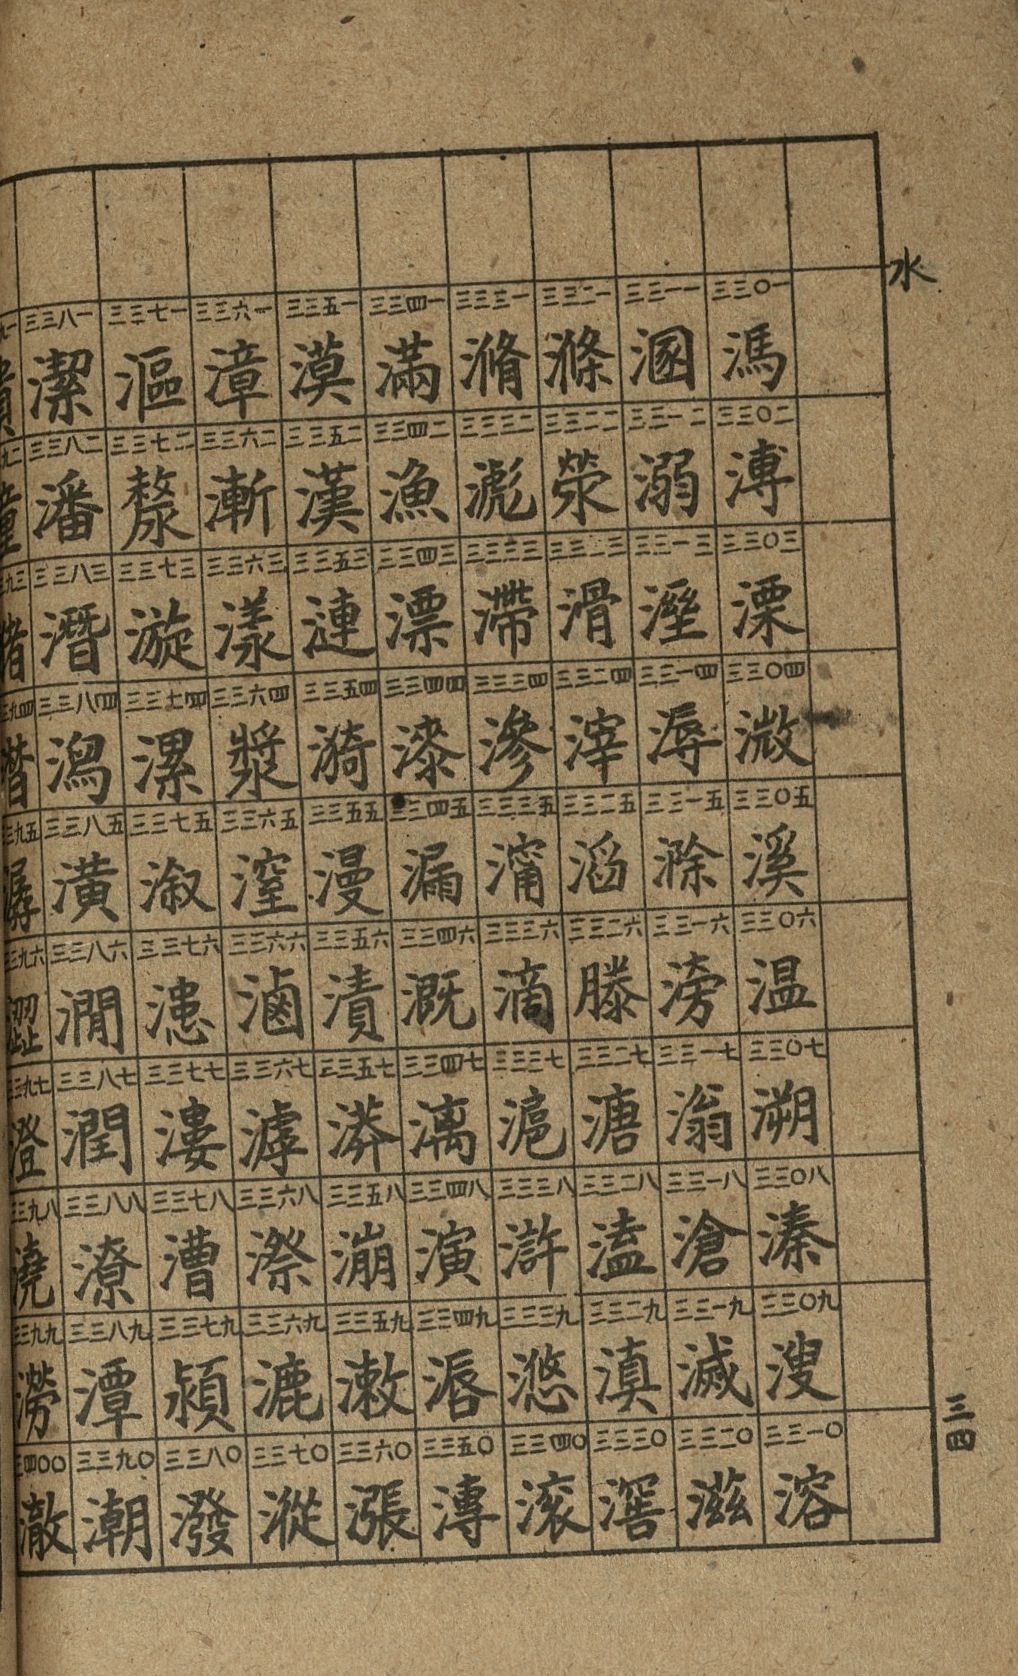 水
三三〇一 馮 三三〇二 溥 三三〇三 溧 三三〇四 溦 三三〇五 溪 三三〇六 温 三三〇七 溯 三三〇八 溱 三三〇九 溲 三三一〇 溶
三三一一 溷 三三一二 溺 三三一三 溼 三三一四 溽 三三一五 滁 三三一六 滂 三三一七 滃 三三一八 滄 三三一九 滅 三三二〇 滋
三三二一 滌 三三二二 滎 三三二三 滑 三三二四 滓 三三二五 滔 三三二六 滕 三三二七 溏 三三二八 溘 三三二九 滇 三三三〇
三三三一 滫 三三三二 滮 三三三三 滯 三三三四 滲 三三三五 三三三六 滴 三三三七 滬 三三三八 滸 三三三九 滺 三三四〇 滾
三三四一 滿 三三四二 漁 三三四三 漂 三三四四 漆 三三四五 漏 三三四六 溉 三三四七 漓 三三四八 演 三三四九 漘 三三五〇 漙
三三五一 漠 三三五二 漢 三三五三 漣 三三五四 漪 三三五五 漫 三三五六 漬 三三五七 漭 三三五八 漰 三三五九 漱 三三六〇 漲
三三六一 漳 三三六二 漸 三三六三 漾 三三六四 漿 三三六五 漥 三三六六 滷 三三六七 滹 三三六八 漈 三三六九 漉 三三七〇 漎
三三七一 漚 三三七二 漦 三三七三 漩 三三七四 漯 三三七五 漵 三三七六 漶 三三七七 漊 三三七八 漕 三三七九 潁 三三八〇 潑
三三八一 潔 三三八二 潘 三三八三 潛 三三八四 潟 三三八五 潢 三三八六 澖 三三八七 潤 三三八八 潦 三三八九 潭 三三九〇 潮
三九六 三三九七 澄 三三九八 澆 三三九九 澇 三四〇〇 澈
三四